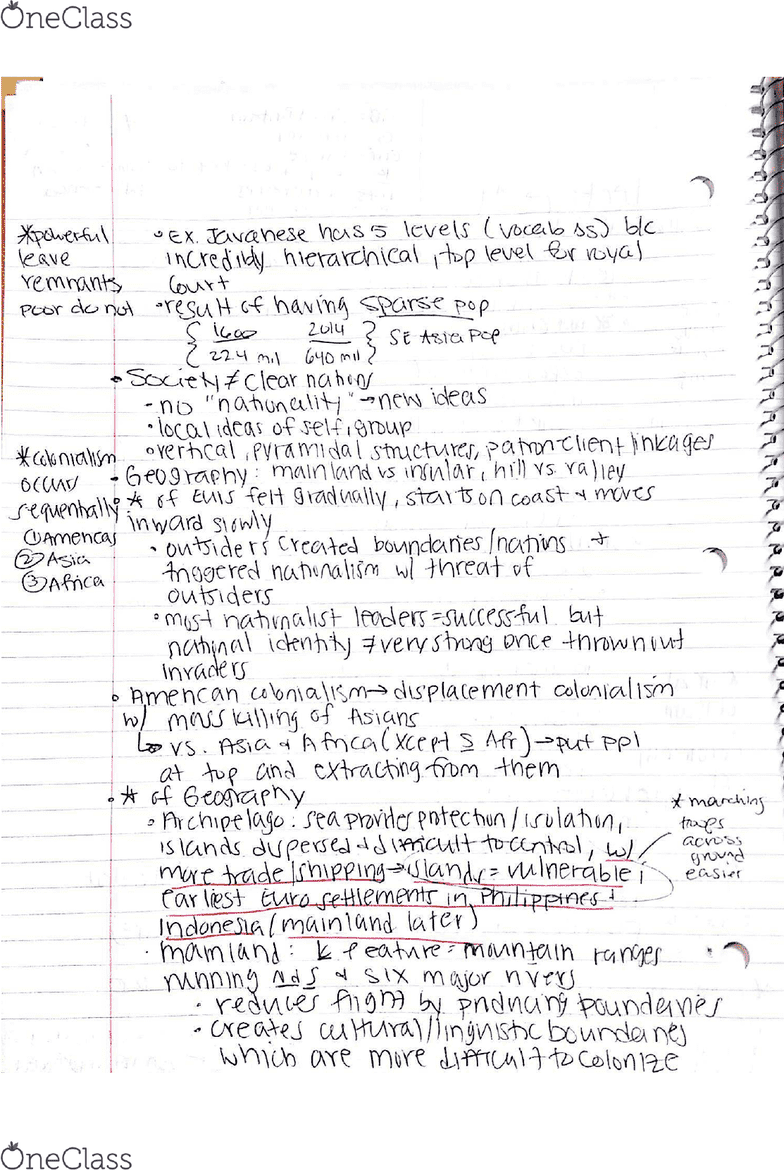 OneClass
*powerful
leave
remnants,
poor do not
• Ex. Javanese has 5 levels (vocab ss) b/c
incredibly hierarchical, top level for royal
court
• result of having sparse pop
{ 1600 2014 } SE Asia Pop
{ 22.4 mil 640 mil }
• Society ≠ clear nations
- no "nationality" → new ideas
• local ideas of self, group
• vertical, pyramidal structures, patron-client linkages
*colonialism
occurs
sequentially
① Americas
② Asia
③ Africa
- Geography: mainland vs insular, hill vs. valley
• * of Euis felt gradually, starts on coast + moves
inward slowly
• outsiders created boundaries/nations +
triggered nationalism w/ threat of
outsiders
• most nationalist leaders = successful but
national identity ≠ very strong once thrown out
invaders
• American colonialism → displacement colonialism
w/ mass killing of Asians
↳ vs. Asia + Africa (xcept S Afr) → put ppl
at top and extracting from them
• * of Geography
• Archipelago: sea provides protection/isolation,
islands dispersed + difficult to control, w/
more trade/shipping → islands = vulnerable;
earliest Euro settlements in Philippines +
Indonesia (mainland later)
* marching
troops
across
ground
easier
• mainland: k feature = mountain ranges
running N+S + six major rivers
• reduces flight by producing boundaries
• creates cultural/linguistic boundaries
which are more difficult to colonize
OneClass